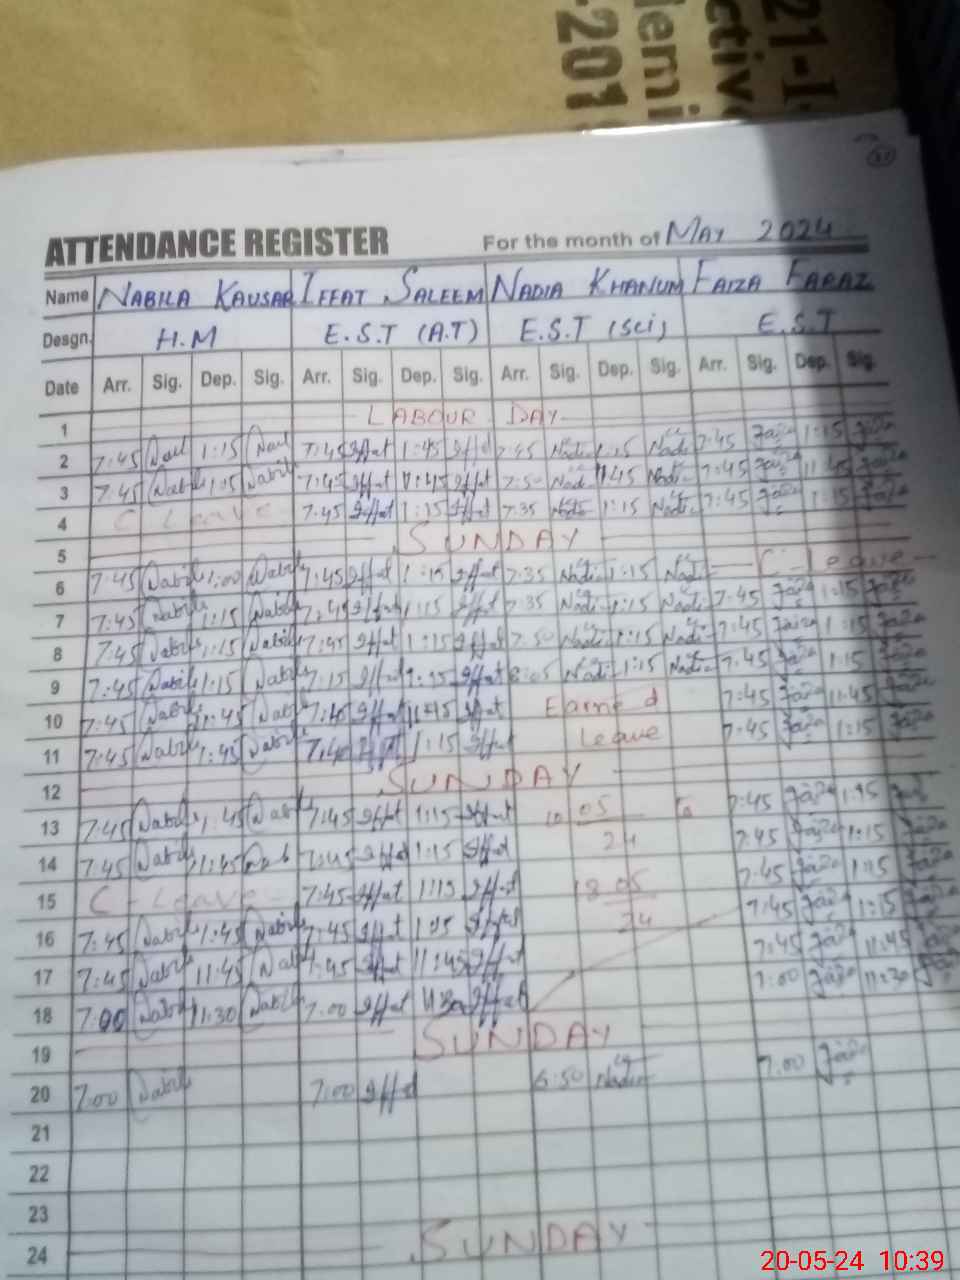 21-I
ctiv
lemi
-201
ATTENDANCE REGISTER For the month of MAY 2024
Name NABILA KAUSAR IFFAT SALEEM NADIA KHANUM FAIZA FARAZ
Desgn. H.M E.S.T (A.T) E.S.T (Sci) E.S.T
Date Arr. Sig. Dep. Sig. Arr. Sig. Dep. Sig. Arr. Sig. Dep. Sig. Arr. Sig. Dep. Sig.
1 LABOUR DAY
2 7:45 1:15 7:45 Iffat 1:45 Iffat 7:45 Nadi 1:15 Nadi 7:45 Faiza 1:15 Faiza
3 7:45 Nabila Nabila 7:45 Iffat Iffat 7:50 Nadi 11:45 Nadi 7:45 Faiza 11:45 Faiza
4 C Leave 7:45 Iffat 1:15 Iffat 7:35 Nadi 1:15 Nadi 7:45 Faiza 1:15 Faiza
5 SUNDAY
6 7:45 Nabila 1:00 Nabila 7:45 Iffat 1:15 Iffat 7:35 Nadi 1:15 Nadi C-Leave
7 7:45 Nabila 1:15 Nabila 7:45 Iffat 1:15 Iffat 7:35 Nadi 1:15 Nadi 7:45 Faiza 1:15 Faiza
8 7:45 Nabila 1:15 Nabila 7:45 Iffat 1:15 Iffat 7:50 Nadi 1:15 Nadi 7:45 Faiza 1:15 Faiza
9 7:45 Nabila 1:15 Nabila 7:15 Iffat Iffat 8:05 Nadi 1:15 Nadi 7:45 Faiza 1:15 Faiza
10 7:45 Nabila 11:45 Nab Iffat 11:45 Iffat Earned 7:45 Faiza 11:45 Faiza
11 7:45 Nabila 1:45 Nabila 7:40 Iffat 1:15 Iffat Leave 7:45 Faiza 1:15 Faiza
12 SUNDAY
13 7:45 Nabila 1:45 Nab 7:45 Iffat 1:15 Iffat 10 05 24 to 7:45 Faiza 1:15
14 7:45 Nabila 11:45 Nab 7:45 Iffat 1:15 Iffat 7:45 Faiza 1:15 Faiza
15 C-Leave 7:45 Iffat 1:15 Iffat 18 05 24 7:45 Faiza 1:15 Faiza
16 7:45 Nabila 1:45 Nabila 7:45 Iffat 1:15 Iffat 7:45 Faiza 1:15 Faiza
17 7:45 Nabila 11:45 Nab 7:45 Iffat 11:45 Iffat 7:45 Faiza 11:45 Faiza
18 7:00 Nabila 11:30 Nabila 7:00 Iffat 11:30 Iffat 7:00 Faiza 11:30 Faiza
19 SUNDAY
20 7:00 Nabila 7:00 Iffat 6:50 Nadi 7:00 Faiza
21
22
23
24 SUNDAY
20-05-24 10:39